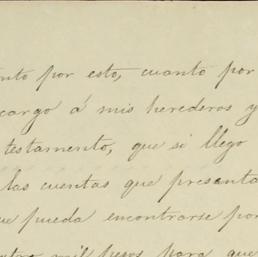 nto por esto, cuanto por
cargo á mis herederos y
testamento, que si llego
las cuentas que presenta
ue pueda encontrarse por
mil pesos para que